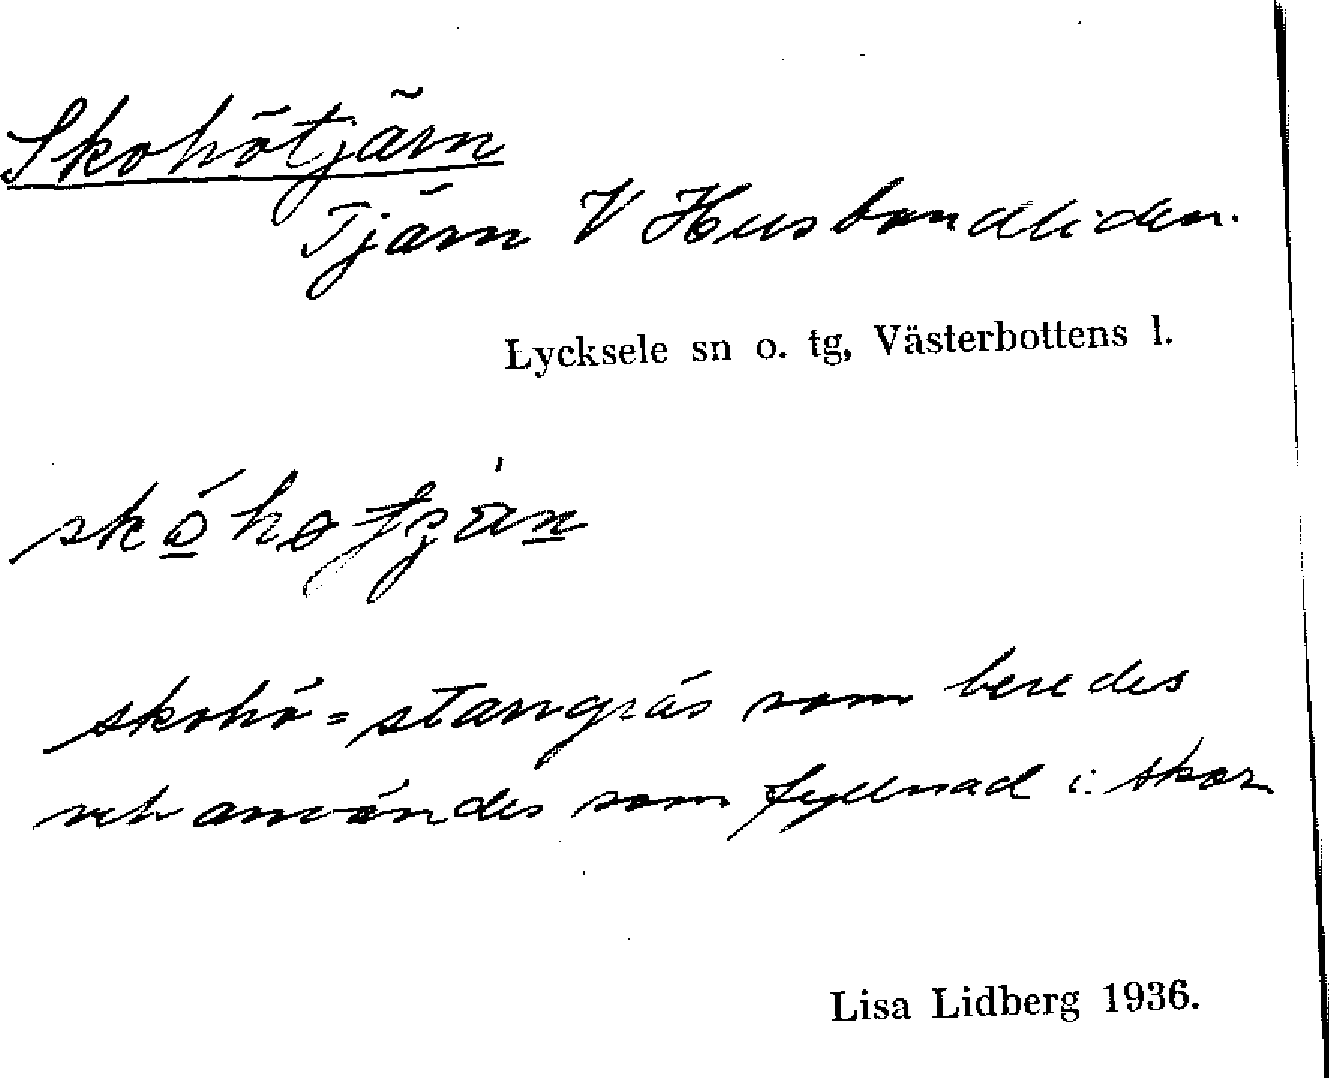 Skohötjärn
Tjärn V Husbondliden.
Lycksele sn o. tg, Västerbottens l.
skohö = starrgräs som beredes
och användes som fyllnad i skor
Lisa Lidberg 1936.